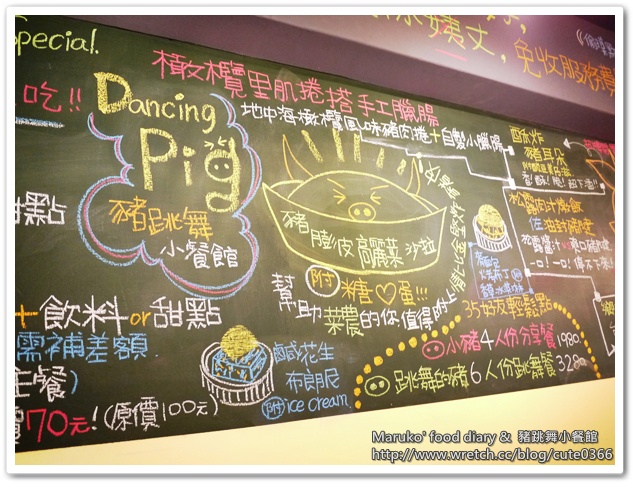 special.
橄欖里肌捲搭手工臘腸
地中海橄欖風味豬肉捲+自製小臘腸
吃!!
Dancing
Pig
豬跳舞
小餐館
甜點
免收服務費
酥炸
豬耳朵
豬膨皮 高麗菜 沙拉
附 糖♡蛋!!!
幫助菜農的你值得
松露肉汁燉飯
佐油封
+飲料 or 甜點
需補差額
主餐)
70元!(原價100元)
鹹花生
布朗尼
附 ice cream
35好友輕鬆點
小豬4人份分享餐 1980
跳舞的豬6人份跳舞餐 3280
Maruko' food diary & 豬跳舞小餐館
http://www.wretch.cc/blog/cute0366